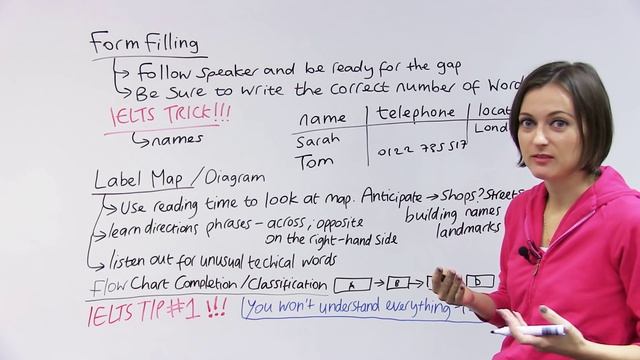 Form Filling
Follow speaker and be ready for the gap
Be Sure to write the correct number of Word
IELTS TRICK!!!
names
name telephone locat
Sarah Lond
Tom 0122 785 517
Label Map / Diagram
Use reading time to look at map. Anticipate → Shops? Streets
building names
landmarks
learn directions phrases - across, opposite
on the right-hand side
listen out for unusual techical words
Flow Chart Completion / Classification A → B → D
IELTS TIP #1 !!!
You won't understand everything -